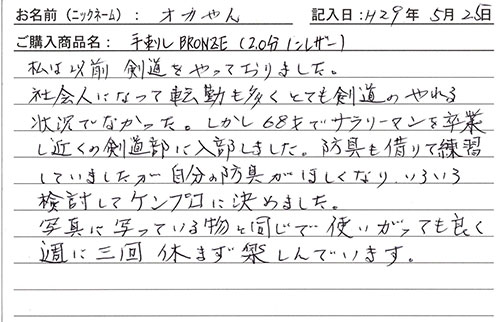 お名前（ニックネーム）： オカやん 記入日：H29年 5月 25日
ご購入商品名： 手刺し BRONZE （2.0分 インレザー）
私は以前 剣道をやっておりました。
社会人になって転勤も多くとても剣道のやれる
状況でなかった。しかし68才でサラリーマンを卒業
し近くの剣道部に入部しました。防具も借りて練習
していましたが自分の防具がほしくなり いろいろ
検討してケンプロに決めました。
写真に写っている物と同じで使いがっても良く
週に三回 休まず楽しんでいます。